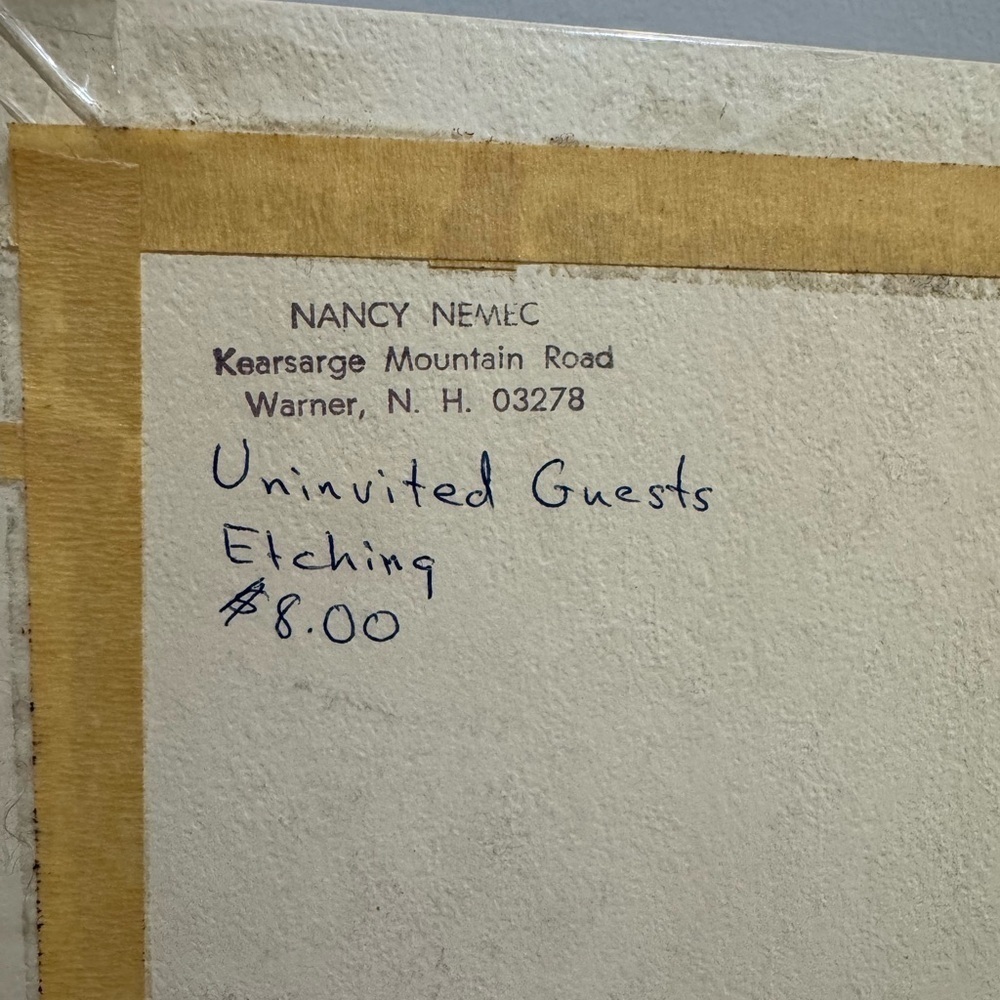 NANCY NEMEC
Kearsarge Mountain Road
Warner, N. H. 03278
Uninvited Guests
Etching
$8.00